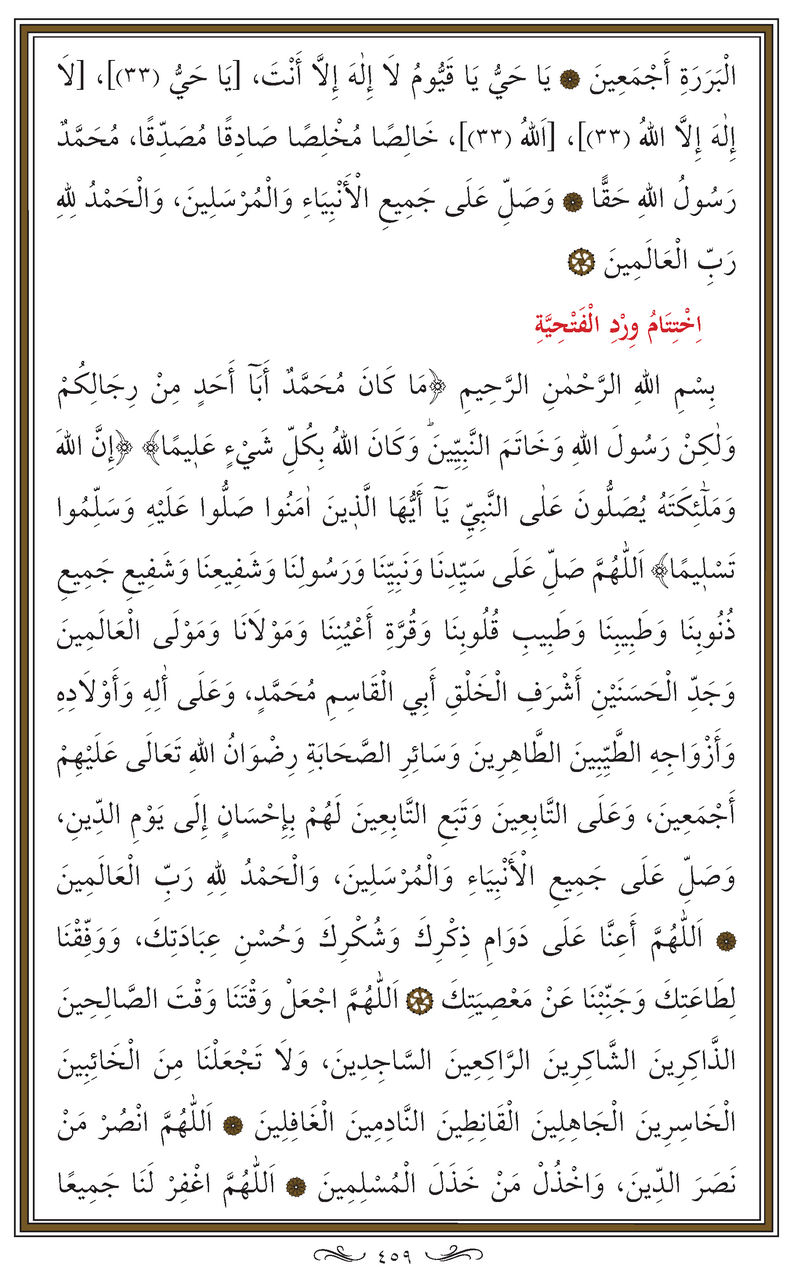 الْبَرَرَةِ أَجْمَعِينَ ۞ يَا حَيُّ يَا قَيُّومُ لَا إِلٰهَ إِلَّا أَنْتَ، [يَا حَيُّ (٣٣)]، [لَا
إِلٰهَ إِلَّا اللهُ (٣٣)]، [اَللهُ (٣٣)]، خَالِصًا مُخْلِصًا صَادِقًا مُصَدِّقًا، مُحَمَّدٌ
رَسُولُ اللهِ حَقًّا ۞ وَصَلِّ عَلَى جَمِيعِ الْأَنْبِيَاءِ وَالْمُرْسَلِينَ، وَالْحَمْدُ لِلهِ
رَبِّ الْعَالَمِينَ ۞
اِخْتِتَامُ وِرْدِ الْفَتْحِيَّةِ
بِسْمِ اللهِ الرَّحْمٰنِ الرَّحِيمِ ﴿مَا كَانَ مُحَمَّدٌ أَبَٓا أَحَدٍ مِنْ رِجَالِكُمْ
وَلٰكِنْ رَسُولَ اللهِ وَخَاتَمَ النَّبِيِّينَۗ وَكَانَ اللهُ بِكُلِّ شَيْءٍ عَلٖيمًا﴾ ﴿إِنَّ اللهَ
وَمَلٰٓئِكَتَهُ يُصَلُّونَ عَلٰى النَّبِيِّ يَٓا أَيُّهَا الَّذٖينَ اٰمَنُوا صَلُّوا عَلَيْهِ وَسَلِّمُوا
تَسْلٖيمًا﴾ اَللّٰهُمَّ صَلِّ عَلَى سَيِّدِنَا وَنَبِيِّنَا وَرَسُولِنَا وَشَفِيعِنَا وَشَفِيعِ جَمِيعِ
ذُنُوبِنَا وَطَبِيبِنَا وَطَبِيبِ قُلُوبِنَا وَقُرَّةِ أَعْيُنِنَا وَمَوْلَانَا وَمَوْلَى الْعَالَمِينَ
وَجَدِّ الْحَسَنَيْنِ أَشْرَفِ الْخَلْقِ أَبِي الْقَاسِمِ مُحَمَّدٍ، وَعَلَى أٰلِهِ وَأَوْلَادِهِ
وَأَزْوَاجِهِ الطَّيِّبِينَ الطَّاهِرِينَ وَسَائِرِ الصَّحَابَةِ رِضْوَانُ اللهِ تَعَالَى عَلَيْهِمْ
أَجْمَعِينَ، وَعَلَى التَّابِعِينَ وَتَبَعِ التَّابِعِينَ لَهُمْ بِإِحْسَانٍ إِلَى يَوْمِ الدِّينِ،
وَصَلِّ عَلَى جَمِيعِ الْأَنْبِيَاءِ وَالْمُرْسَلِينَ، وَالْحَمْدُ لِلهِ رَبِّ الْعَالَمِينَ
۞ اَللّٰهُمَّ أَعِنَّا عَلَى دَوَامِ ذِكْرِكَ وَشُكْرِكَ وَحُسْنِ عِبَادَتِكَ، وَوَفِّقْنَا
لِطَاعَتِكَ وَجَنِّبْنَا عَنْ مَعْصِيَتِكَ ۞ اَللّٰهُمَّ اجْعَلْ وَقْتَنَا وَقْتَ الصَّالِحِينَ
الذَّاكِرِينَ الشَّاكِرِينَ الرَّاكِعِينَ السَّاجِدِينَ، وَلَا تَجْعَلْنَا مِنَ الْخَائِبِينَ
الْخَاسِرِينَ الْجَاهِلِينَ الْقَانِطِينَ النَّادِمِينَ الْغَافِلِينَ ۞ اَللّٰهُمَّ انْصُرْ مَنْ
نَصَرَ الدِّينَ، وَاخْذُلْ مَنْ خَذَلَ الْمُسْلِمِينَ ۞ اَللّٰهُمَّ اغْفِرْ لَنَا جَمِيعًا
٤٥٩